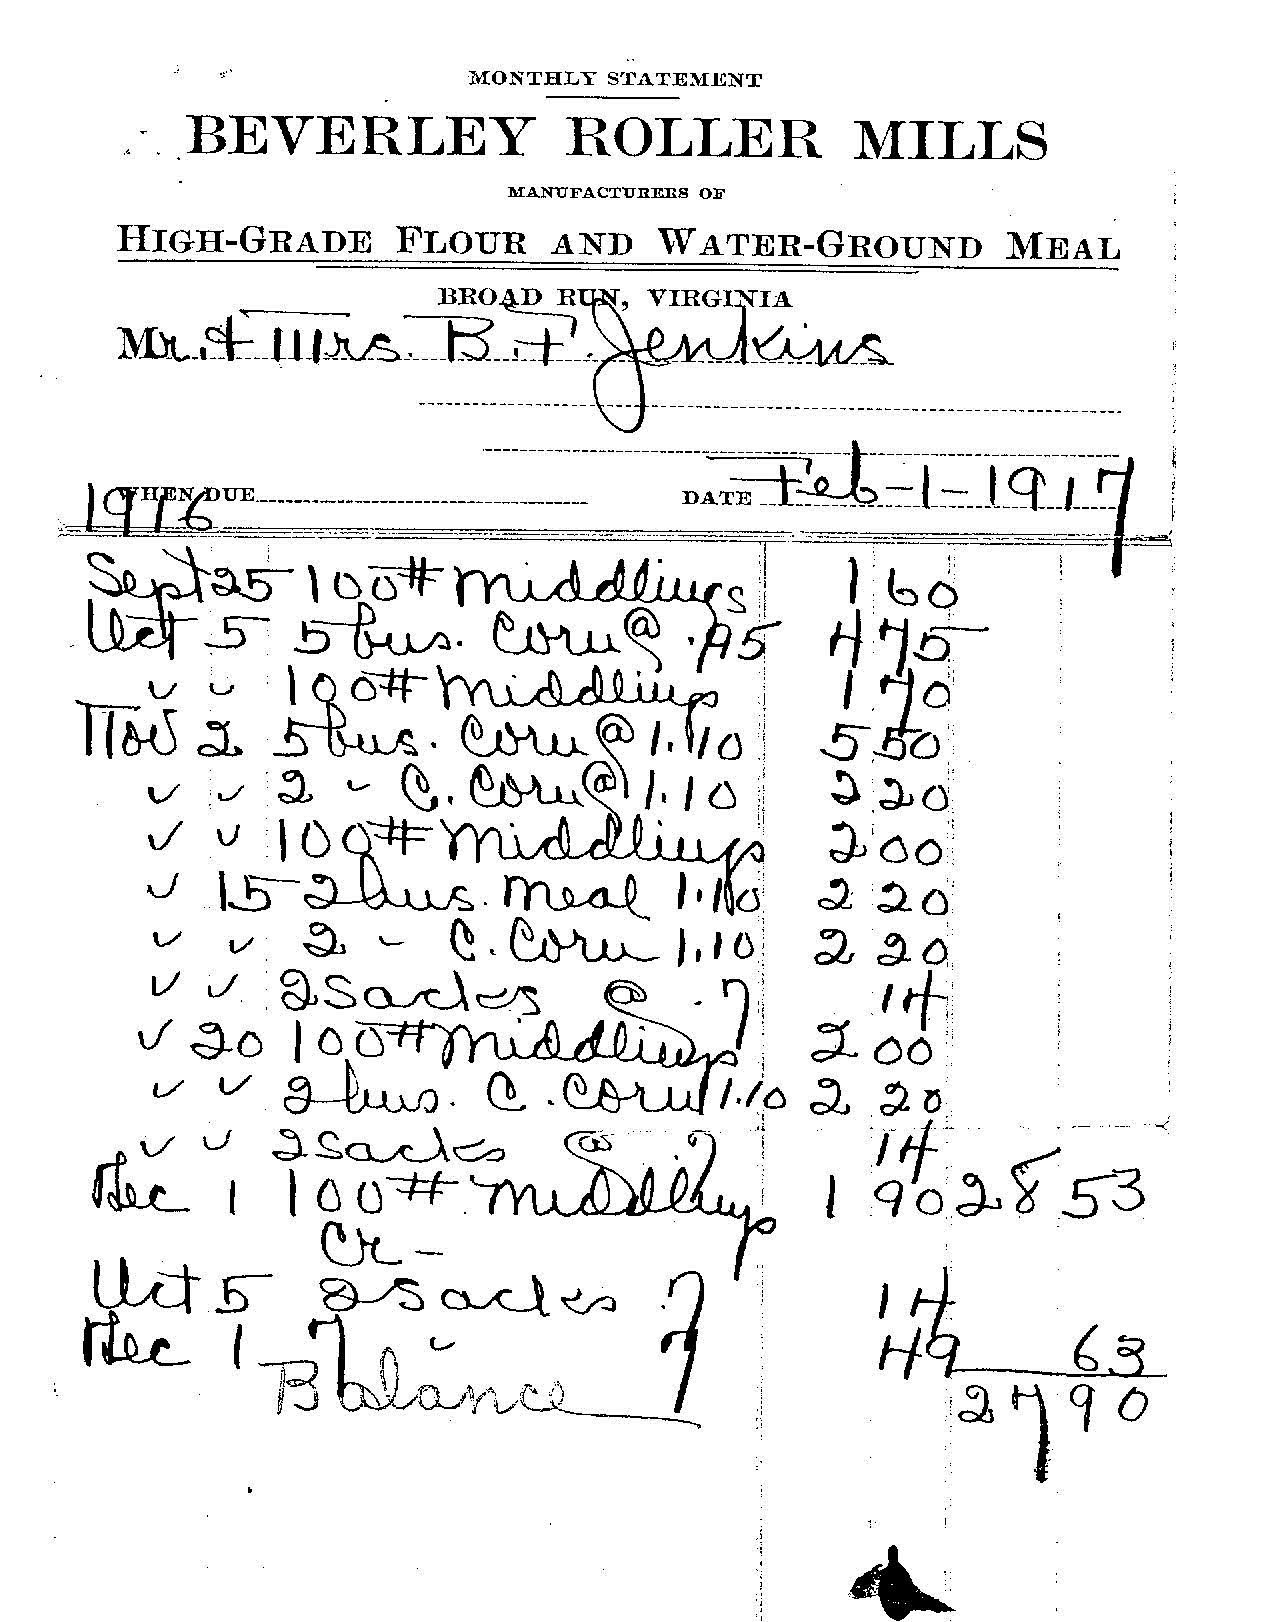 MONTHLY STATEMENT
BEVERLEY ROLLER MILLS
MANUFACTURERS OF
HIGH-GRADE FLOUR AND WATER-GROUND MEAL
BROAD RUN, VIRGINIA
Mr. & Mrs. B. F. Jenkins
WHEN DUE DATE Feb-1-1917
1916
Sept 25 100# Middlings 1 60
Oct 5 5 bus. Corn @ .95 4 75
" " 100# Middlings 1 70
Nov 2 5 bus. Corn @ 1.10 5 50
" " 2 - C. Corn @ 1.10 2 20
" " 100# Middlings 2 00
" 15 2 bus. Meal 1.10 2 20
" " 2 - C. Corn 1.10 2 20
" " 2 Sacks @ .7 14
" 20 100# Middlings 2 00
" " 2 bus. C. Corn 1.10 2 20
" " 2 Sacks @ .7 14
Dec 1 100# Middlings 1 90 28 53
Cr -
Oct 5 2 Sacks .7 14
Dec 1 7 " 7 49 63
Balance 27 90